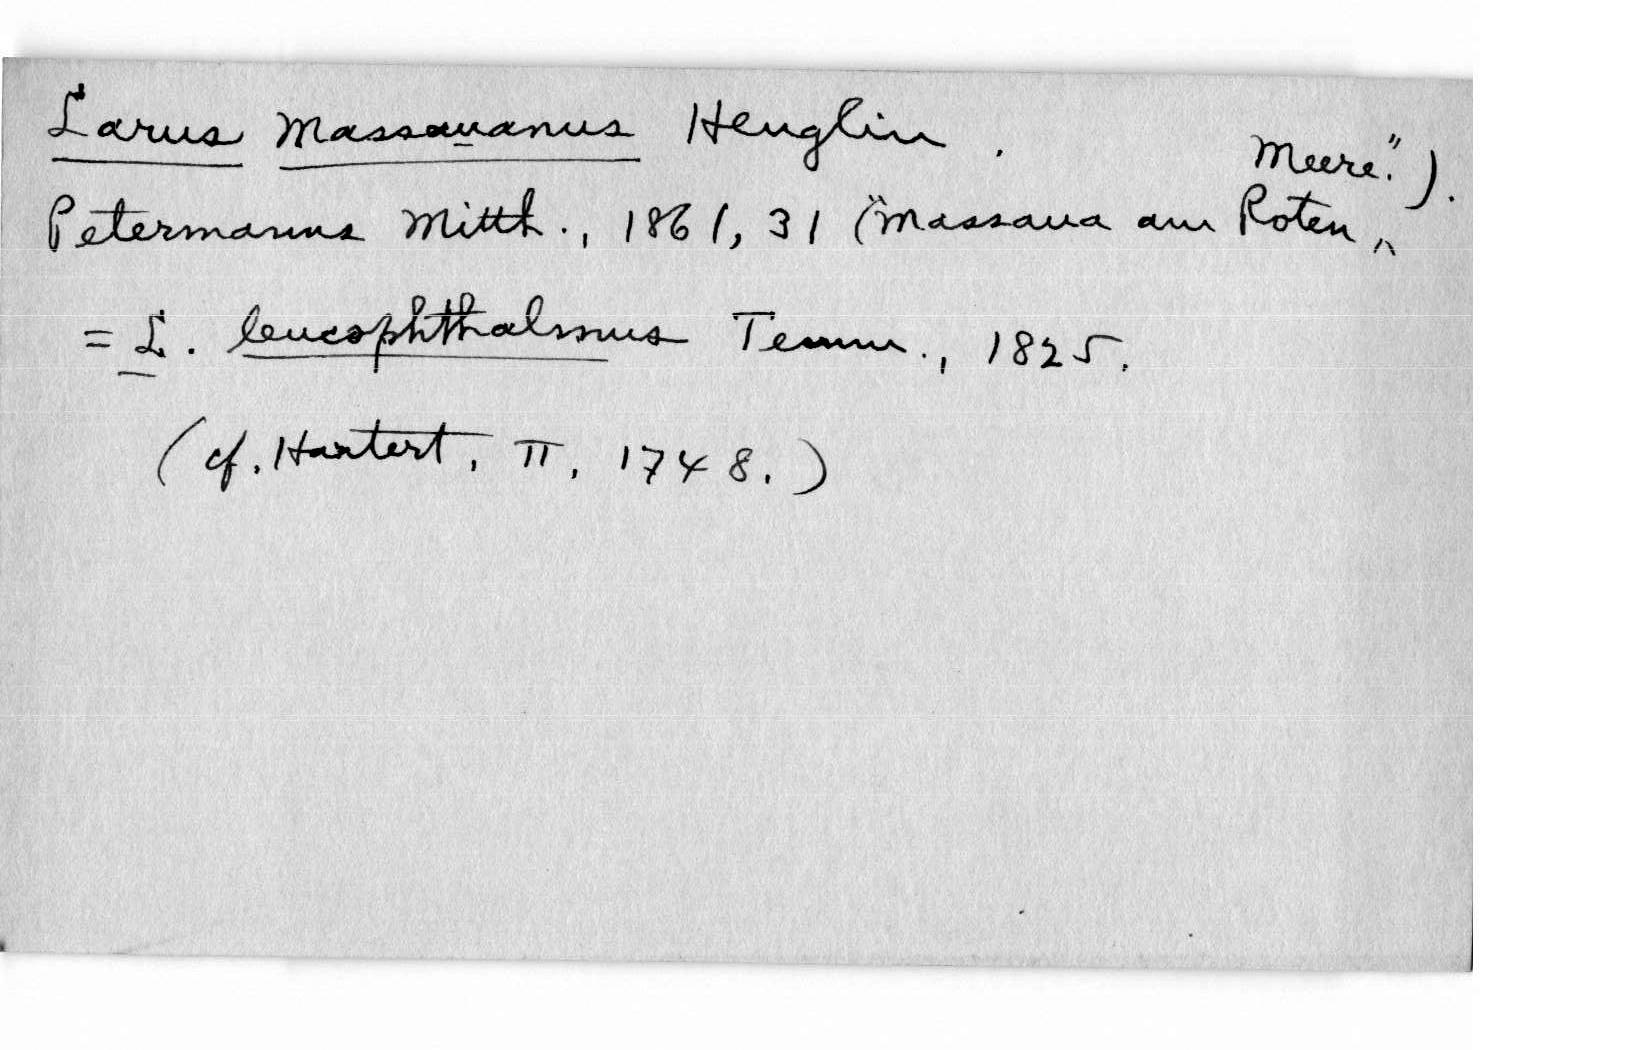 Larus massauanus Heuglin.
Petermanns Mitth., 1861, 31 ("Massaua am Roten Meere.").
= L. leucophthalmus Temm., 1825.
(cf. Hartert, II, 1748.)